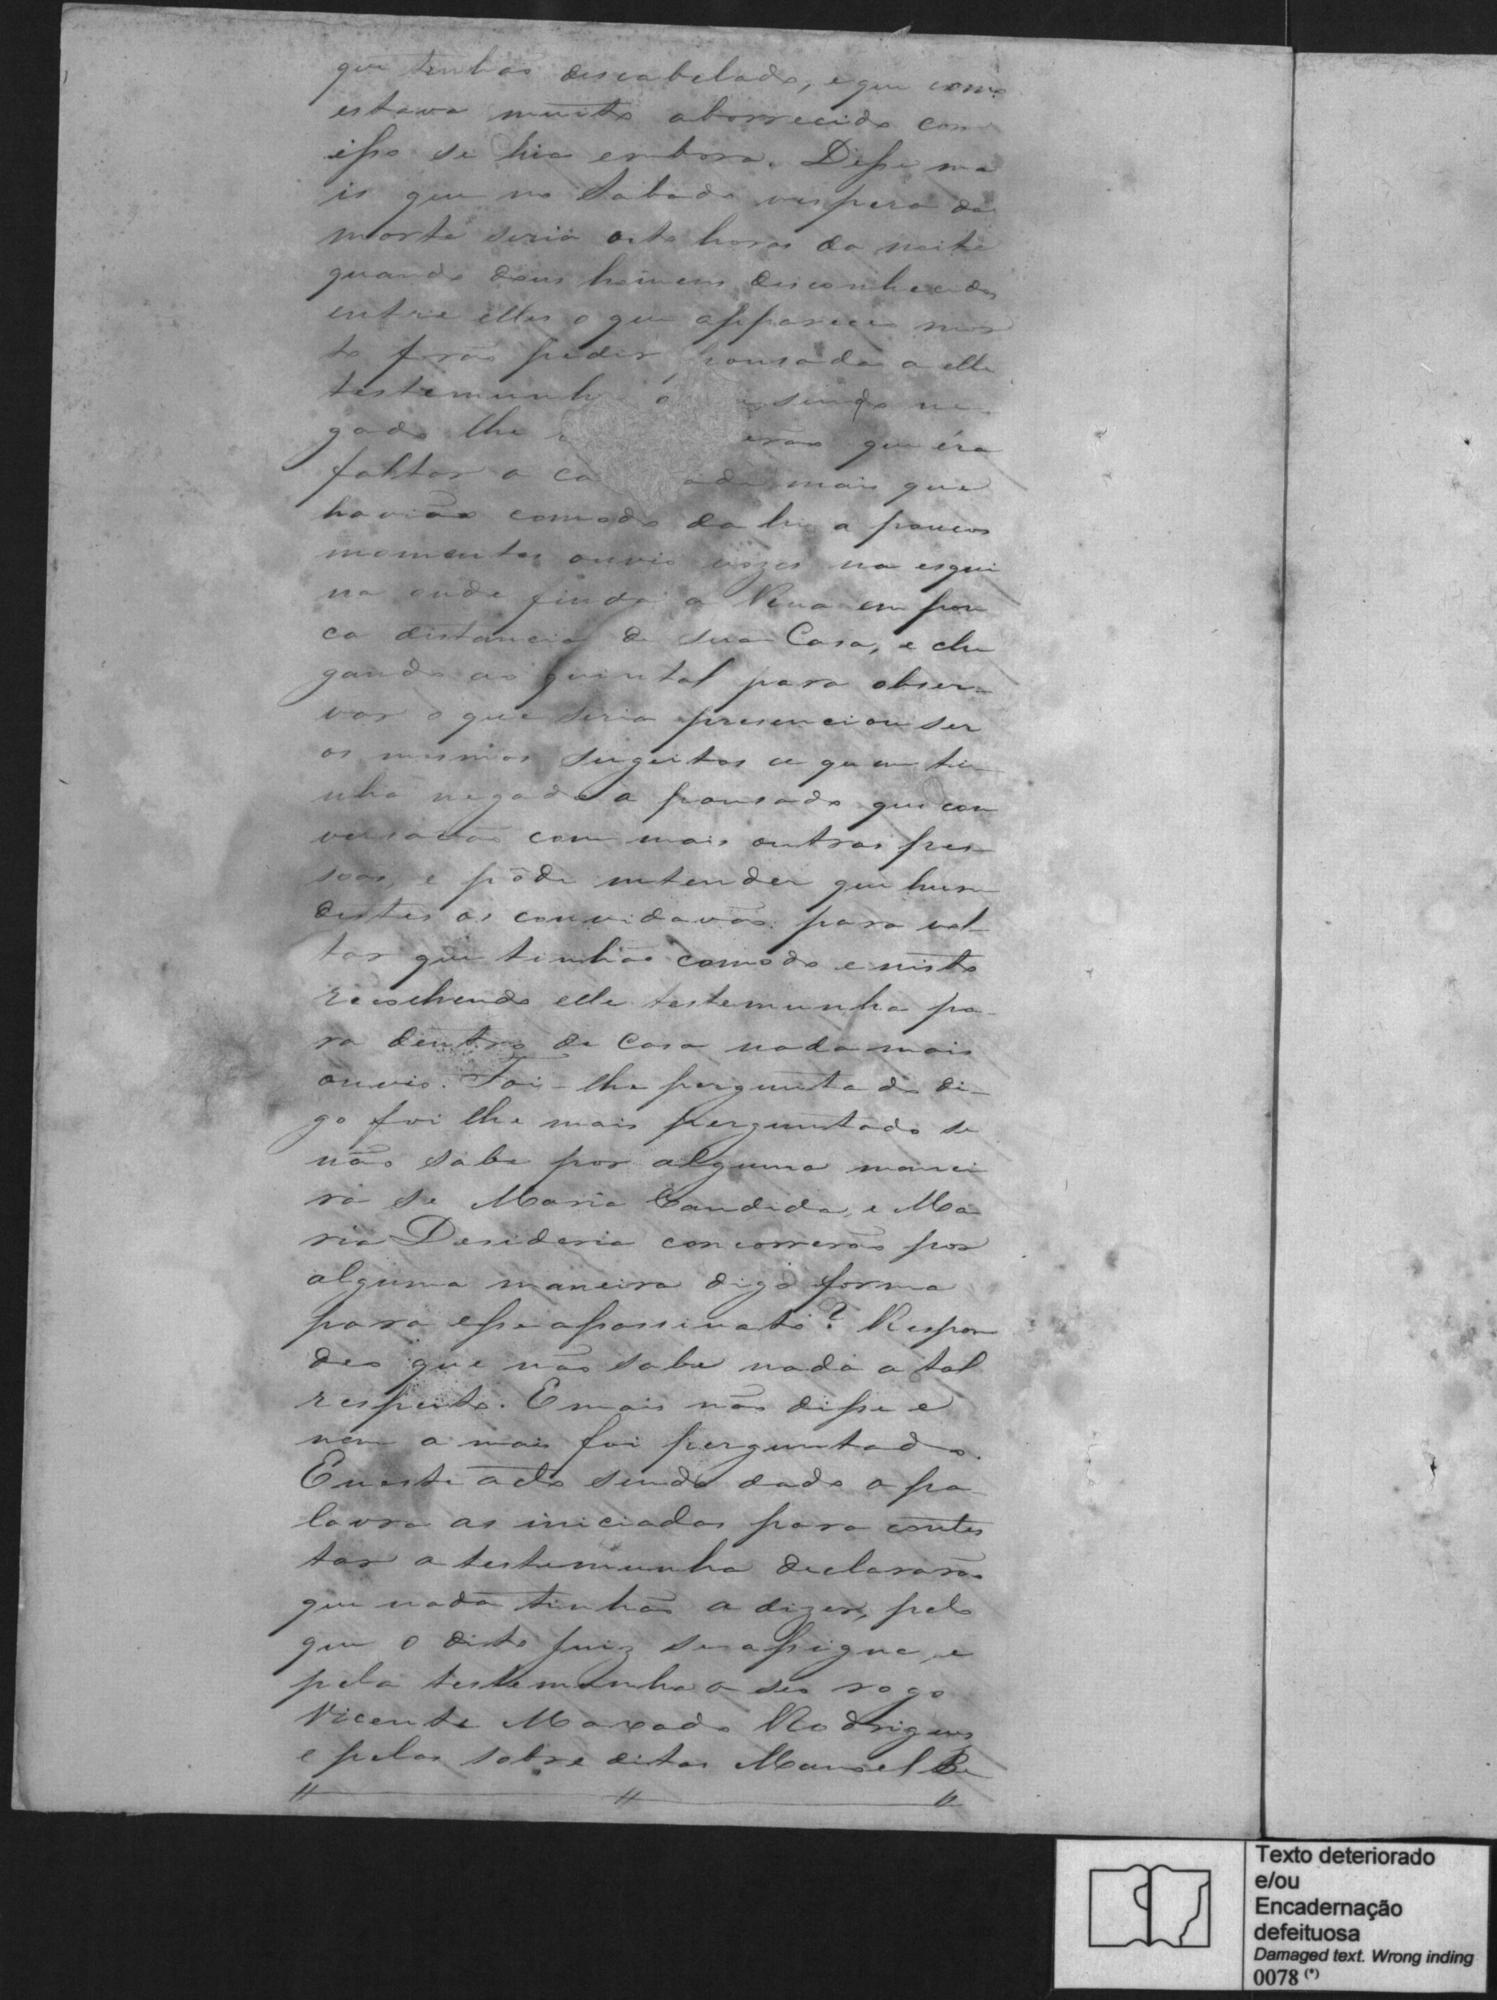 que tinhão descabelado, e que como
estava muito aborrecido com
isso se hia embora. Disse ma
is que no Sabado vespera da
morte seria oito horas da noite
quando dous homens desconhecidos
entre elles o que appareceo mor
to forão pedir pousada a elle
testemunha sendo ne
gado lhe erão que éra
faltar a ca mais que
havião comodo da hi a poucos
momentos ouvio vozes na esqui
na onde finda a Rua em pou
ca distancia de sua Casa, e che
gando ao quintal para obser-
var o que seria presenciou ser
os mesmos sugeitos a quem ti-
nha negado a pousada que con
versavão com mais outras pes-
soas, e pôde entender que hum
destes os convidavão para vol-
tar que tinhão comodo e nisto
recolhendo elle testemunha pa-
ra dentro de casa nada mais
ouvio. Foi-lhe perguntado di-
go foi lhe mais perguntado se
não sabe por alguma manei
ra se Maria Candida, e Ma
ria Desideria concorrerão por
alguma maneira digo forma
para esse assassinato? Respon
deo que não sabe nada a tal
respeito. E mais não disse e
nem a mais foi perguntado.
E neste acto sendo dado a pa
lavra as iniciadas para contes
tar a testemunha declararão
que nada tinhão a dizer, pelo
que o dito Juiz se assigna, e
pela testemunha a seo rogo
Vicente Maxado Rodrigues
e pelas sobre ditas Manoel Be
Texto deteriorado
e/ou
Encadernação
defeituosa
Damaged text. Wrong inding
0078 (*)